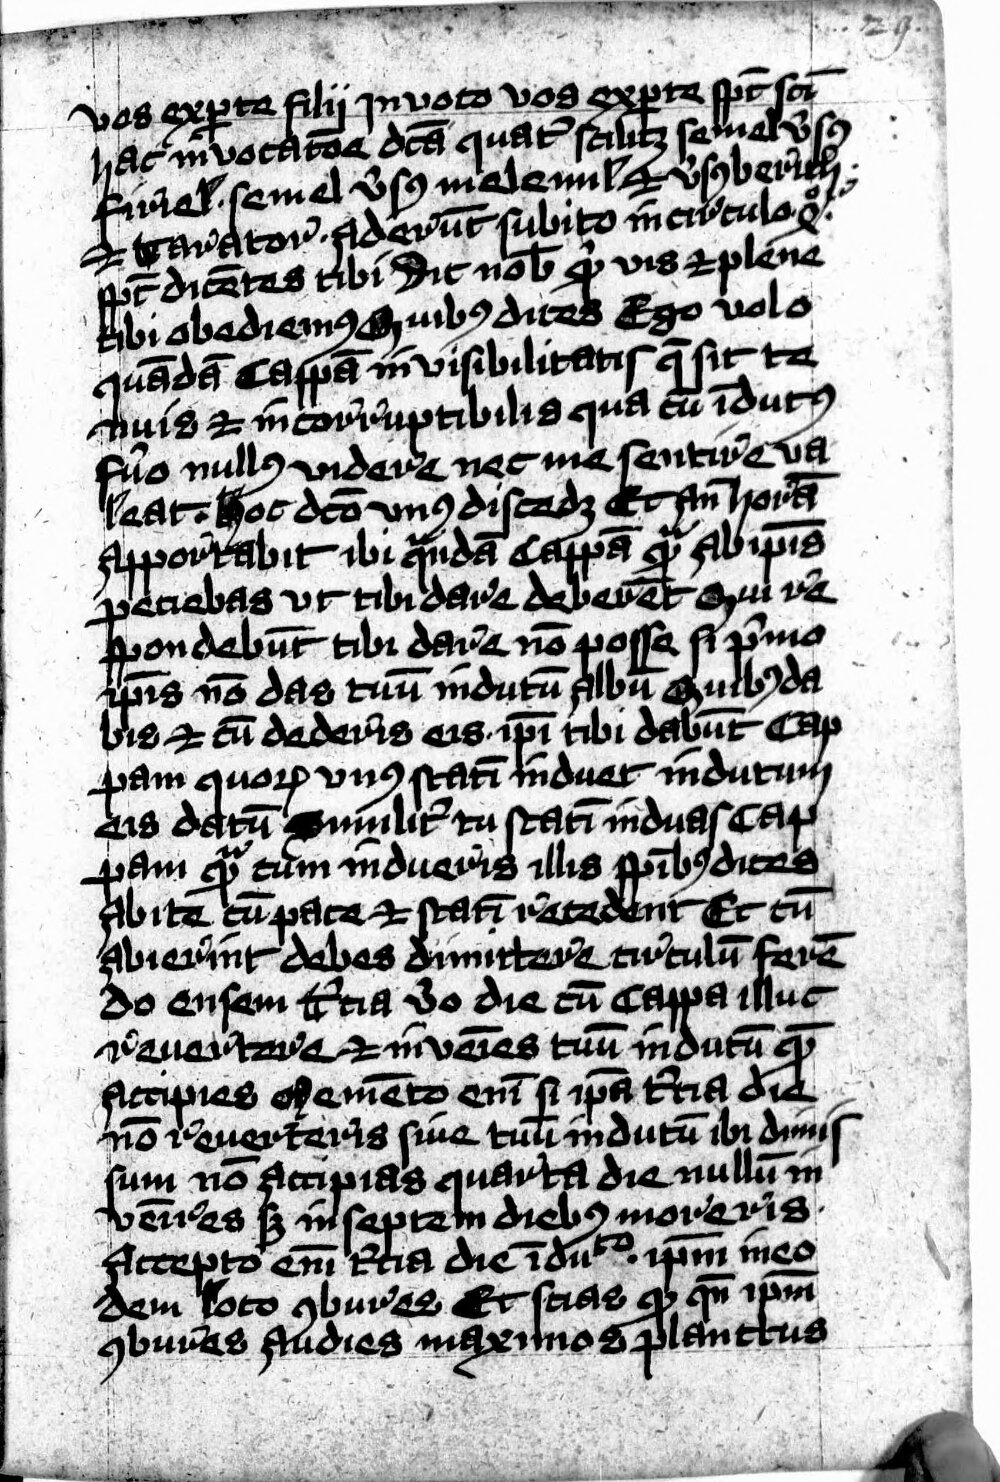 29.
vos ex ꝑte filij Inuoco vos ex ꝑte spc̄ scī
hac invocatōe dc̄a quat᷑ scilicꝫ semel v̓sꝰ
firiel. semel v̓sꝰ melemil ⁊ v̓sꝰ berith
⁊ tarator. Aderūt subito in circulo
spc̄ dicētes tibi Dic nob̄ qͥd vis ⁊ plene
tibi obediemꝰ Quibꝰ dices Ego volo
quādā Cappā invisibilitatis q̄ sit te
nuis ⁊ incorruptibilis qua cū īdutꝰ
fūo nullꝰ videre nec me sentire va
leat. hoc dc̄o vnꝰ discedꝫ Et an̄ horā
Apportabit ibi qͣndā Cappā qͣ Ab ip̄is
peciebas vt tibi dare deberēt Qui re
spondebūt tibi dare nō posse si pͥmo
ip̄is nō das tuū indutū Albū Quibꝰ da
bis ⁊ cū dederis eis. ip̄i tibi dabūt Cap
pam quoꝝ vnꝰ statī induet indutum
eis datū Similit᷑ tu statī induas Cap
pam qͣ cum indueris illis sp̄ibꝰ dices
Abite cū pace ⁊ statī recedent Et cū
Abierint debes dimittere circulū ferē
do ensem t̓cia v̓o die cū Cappa illuc
reuertere ⁊ inveīes tuū indutū qd̄
Accipies Memēto enī si ip̄a t̓cia die
nō reuerteris siue tuū indutū ibi dimis
sum nō Accipias quarta die nullū in
veīres sꝫ in septem diebꝰ moreris.
Accepto enī t̓cia die īduᵗᵒ. ip̄m in eo
dem loco ꝯbures Et scias ꝙ qn̄ ip̄m
ꝯbures Audies maximos planctus